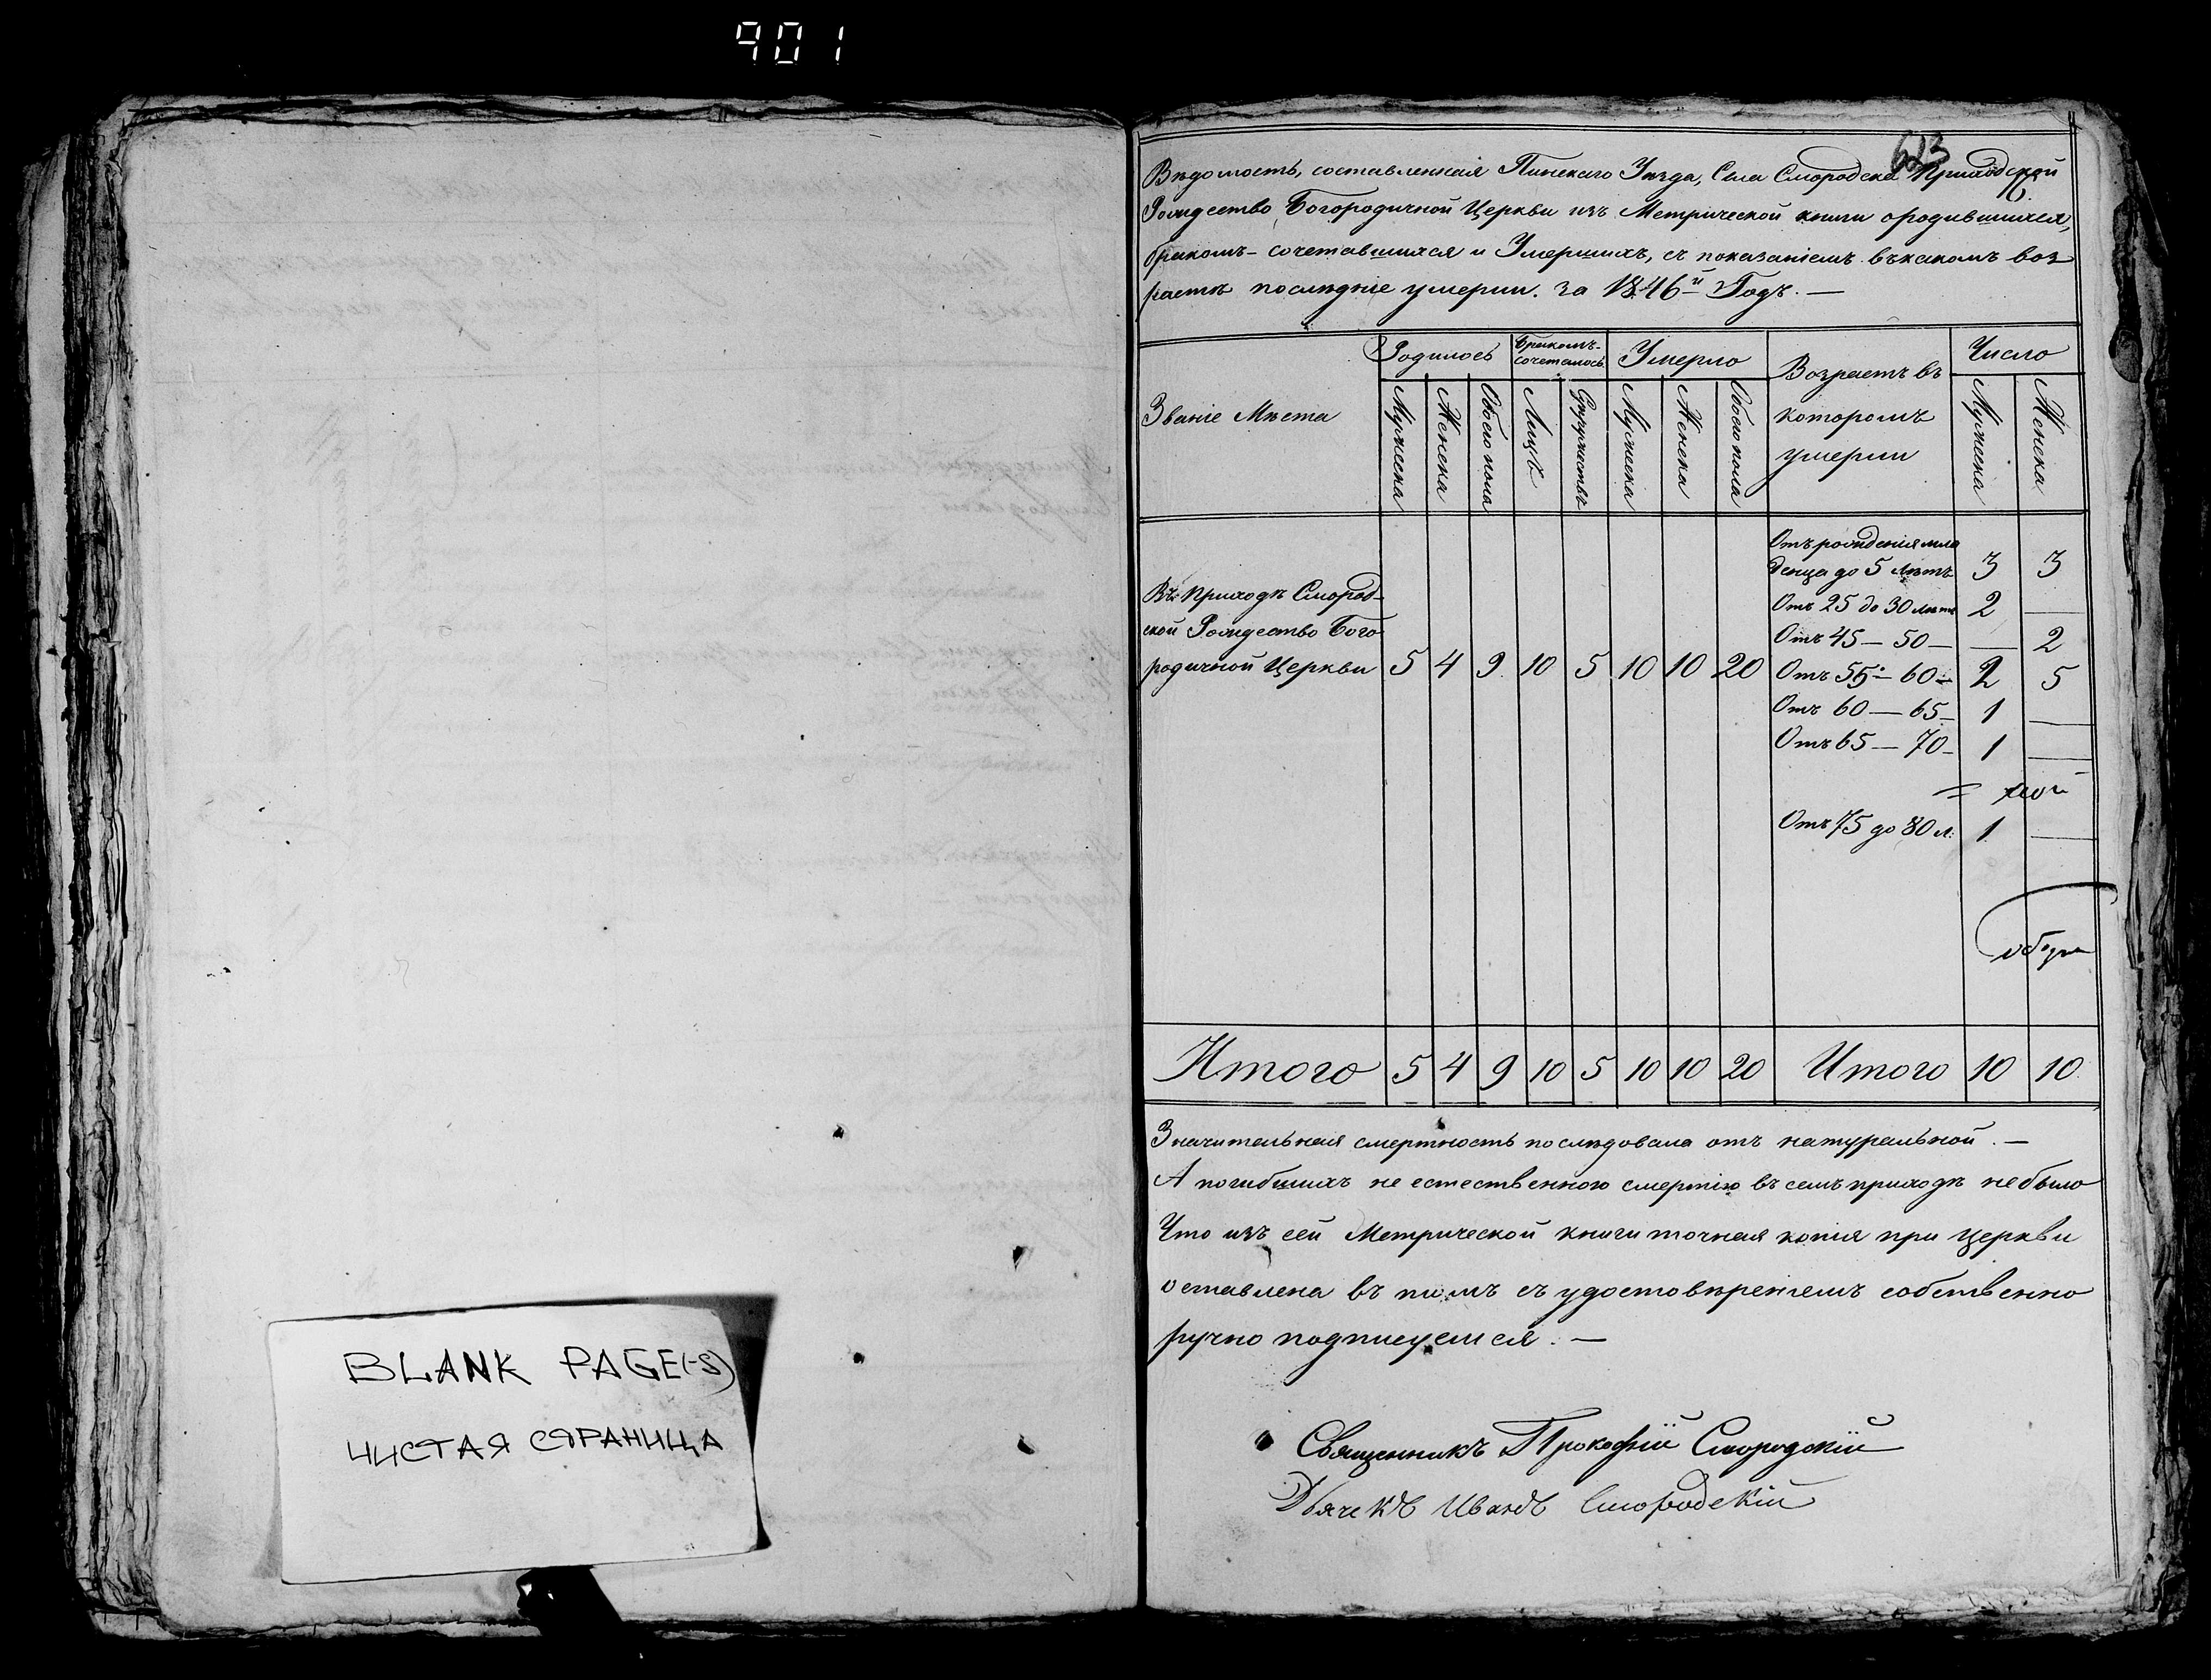 901
BLANK PAGE(-S)
ЧИСТАЯ СТРАНИЦА
623
Вѣдомость, составленная Пинскаго Уѣзда, Села Смородска Приходской
Рождество Богородичной Церкви изъ Метрической книги о родившихся,
бракомъ-сочетавшихся и Умершихъ, съ показаніемъ въ какомъ воз
растѣ послѣдніе умерли. За 1846й Годъ. —
Званіе Мѣста
Родилось
Бракомъ-сочеталось
Умерло
Возрастъ въ
которомъ
умерли
Число
Мужеска
Женска
Обоего пола
Лицъ
Супружествъ
Мужеска
Женска
Обоего пола
Мужеска
Женска
Въ Приходѣ Смород-
ской Рождество Бого
родичной Церкви 5 4 9 10 5 10 10 20
Отъ рожденія мла
денца до 5 Лѣтъ 3 3
Отъ 25 до 30 лѣтъ 2 —
Отъ 45 — 50 — — 2
Отъ 55 — 60 — 2 5
Отъ 60 — 65 — 1 —
Отъ 65 — 70 — 1 —
Отъ 75 до 80 л. 1 —
Итого 5 4 9 10 5 10 10 20 Итого 10 10
Значительная смертность послѣдовала отъ натуральной. —
А погибшихъ не естественною смертію въ семъ приходѣ не было
Что изъ сей Метрической книги точная копія при Церкви
оставлена въ томъ съ удостовѣреніемъ собственно
ручно подписуемся. —
Священникъ Прокофій Смородскій
Дьячекъ Иванъ Смородскій